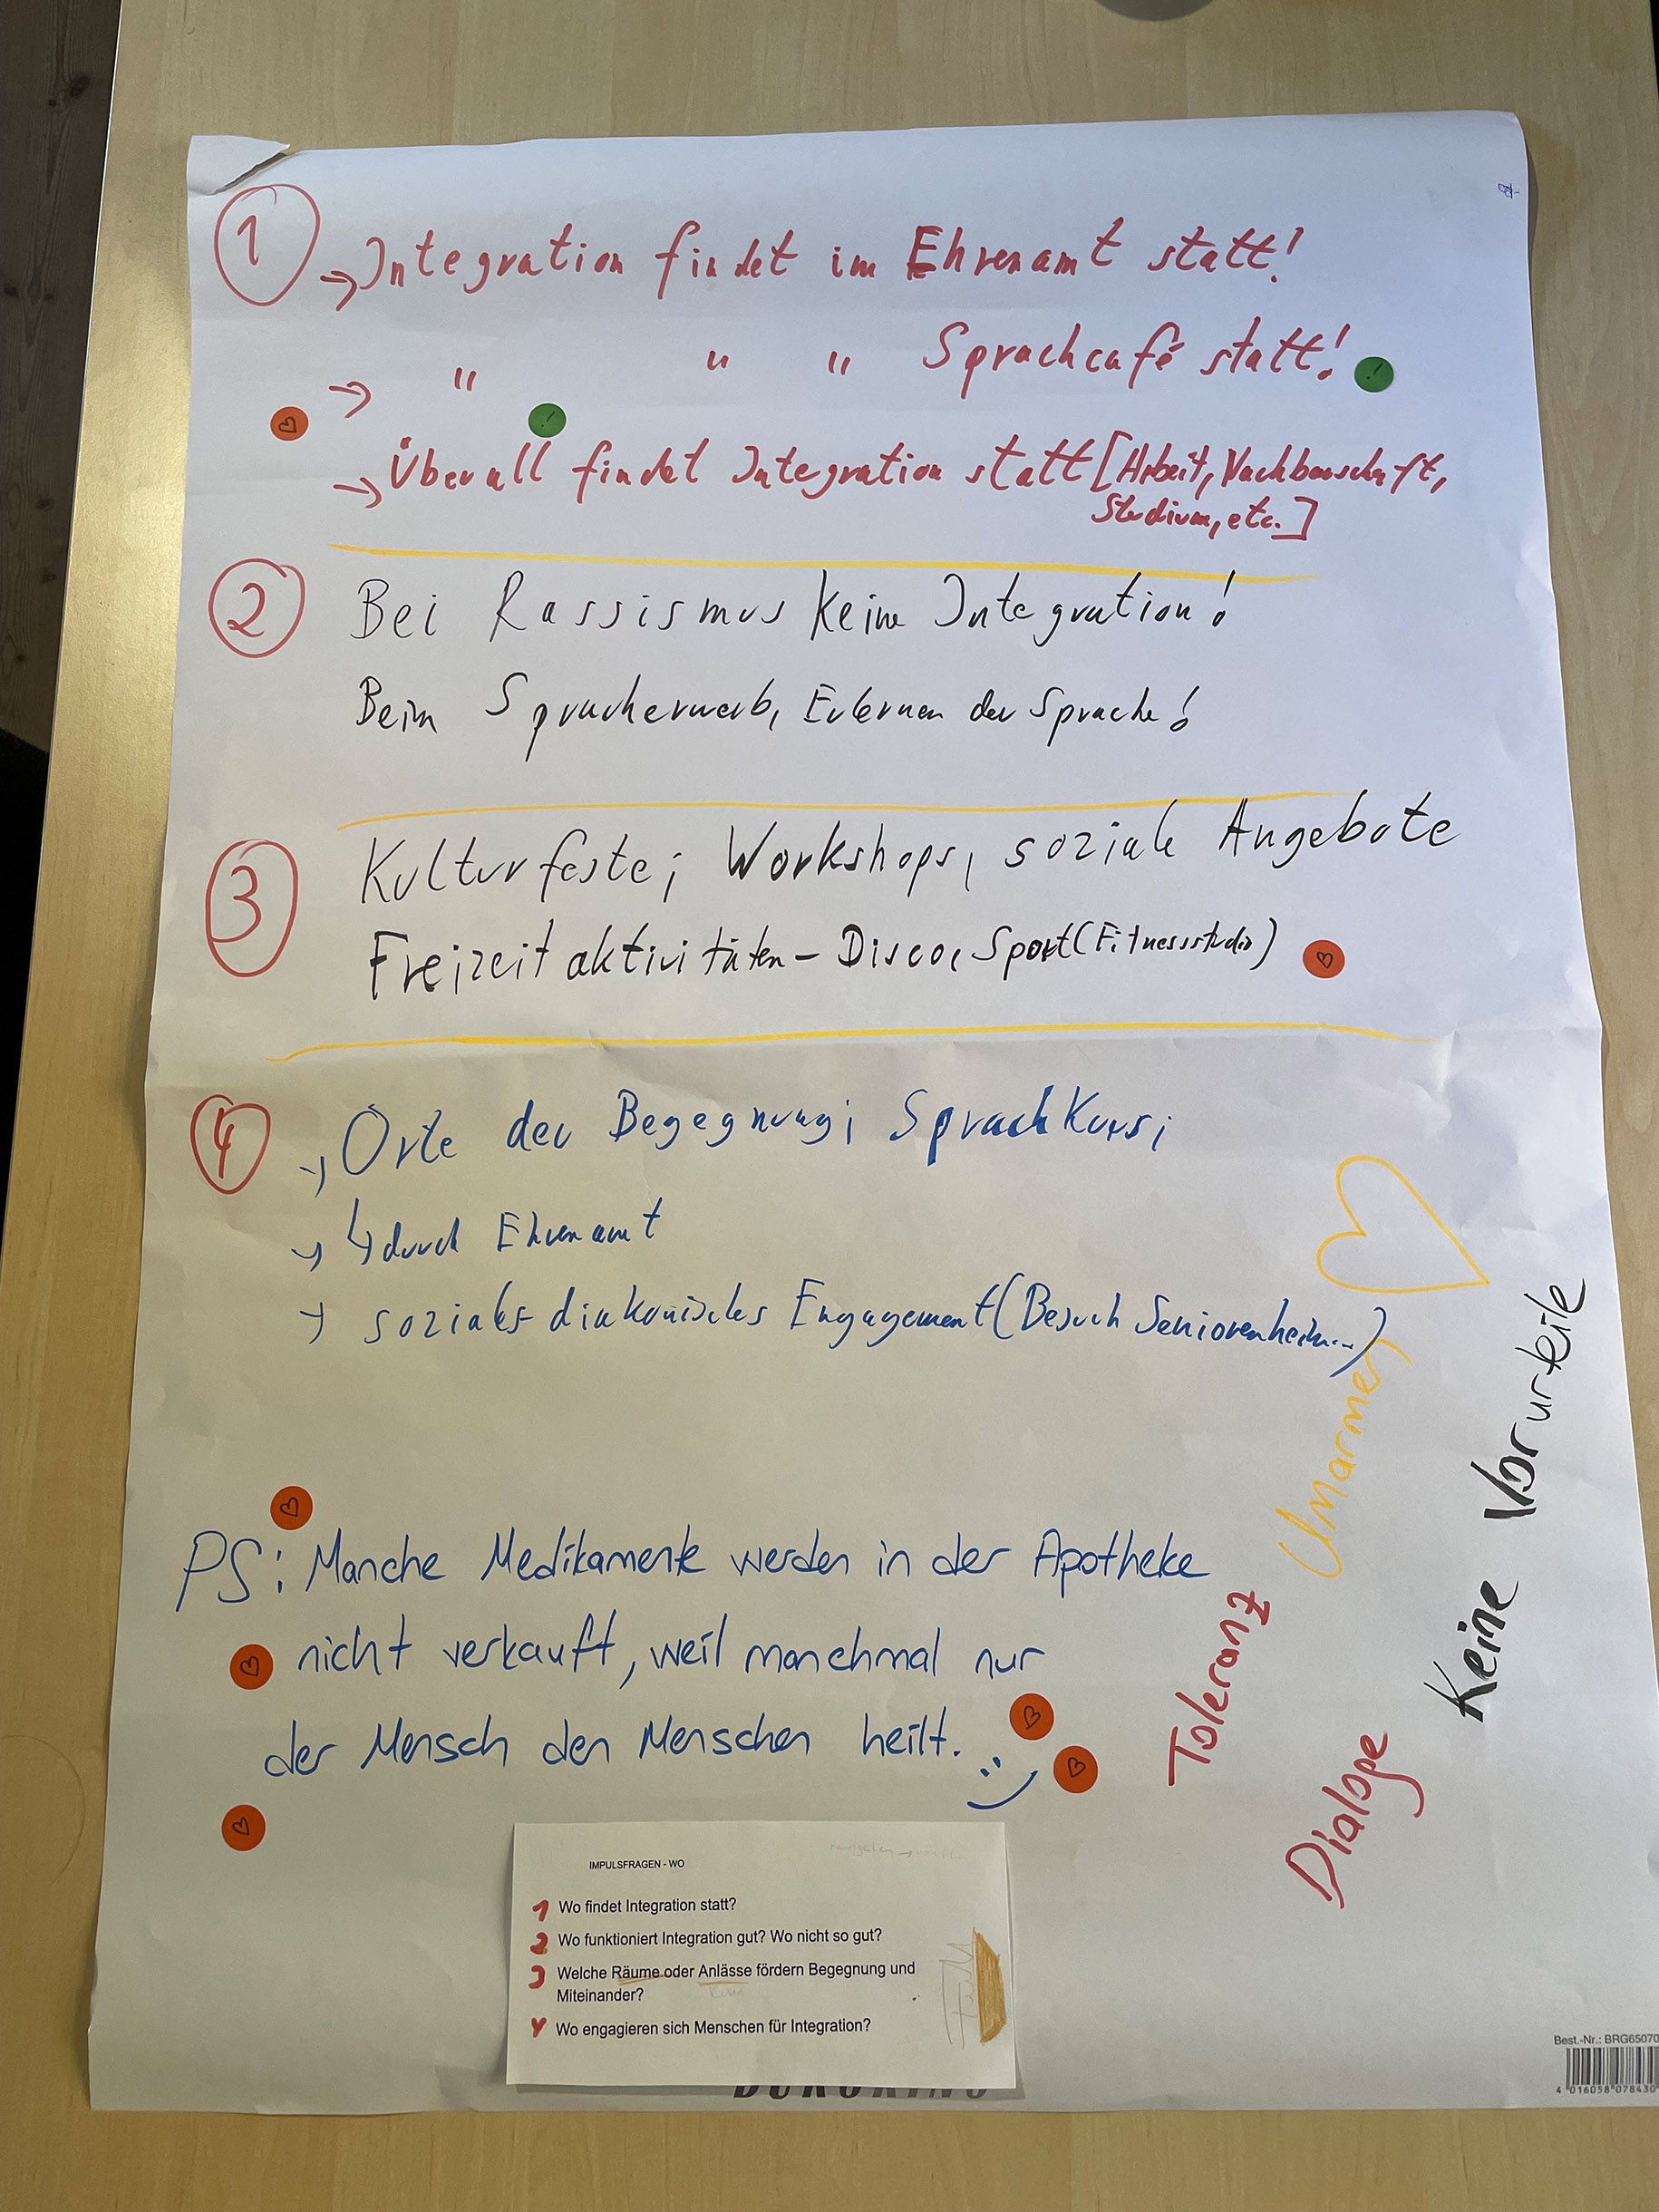 1
→ Integration findet im Ehrenamt statt!
→ " " " Sprachcafé statt! !
!
→ Überall findet Integration statt [Arbeit, Nachbarschaft,
Studium, etc.]
2
Bei Rassismus keine Integration!
Beim Spracherwerb, Erlernen der Sprache!
3
Kulturfeste; Workshops, soziale Angebote
Freizeitaktivitäten - Disco, Sport (Fitnessstudio)
4
→ Orte der Begegnung; Sprachkurs;
→ ↳ durch Ehrenamt
→ soziales-diakonisches Engagement (Besuch Seniorenheim...)
Umarmen
Keine Vorurteile
Toleranz
Dialoge
PS: Manche Medikamente werden in der Apotheke
nicht verkauft, weil manchmal nur
der Mensch den Menschen heilt.
IMPULSFRAGEN - WO
1 Wo findet Integration statt?
2 Wo funktioniert Integration gut? Wo nicht so gut?
3 Welche Räume oder Anlässe fördern Begegnung und
Miteinander?
4 Wo engagieren sich Menschen für Integration?
Best.-Nr.: BRG65070
4 016058 078430